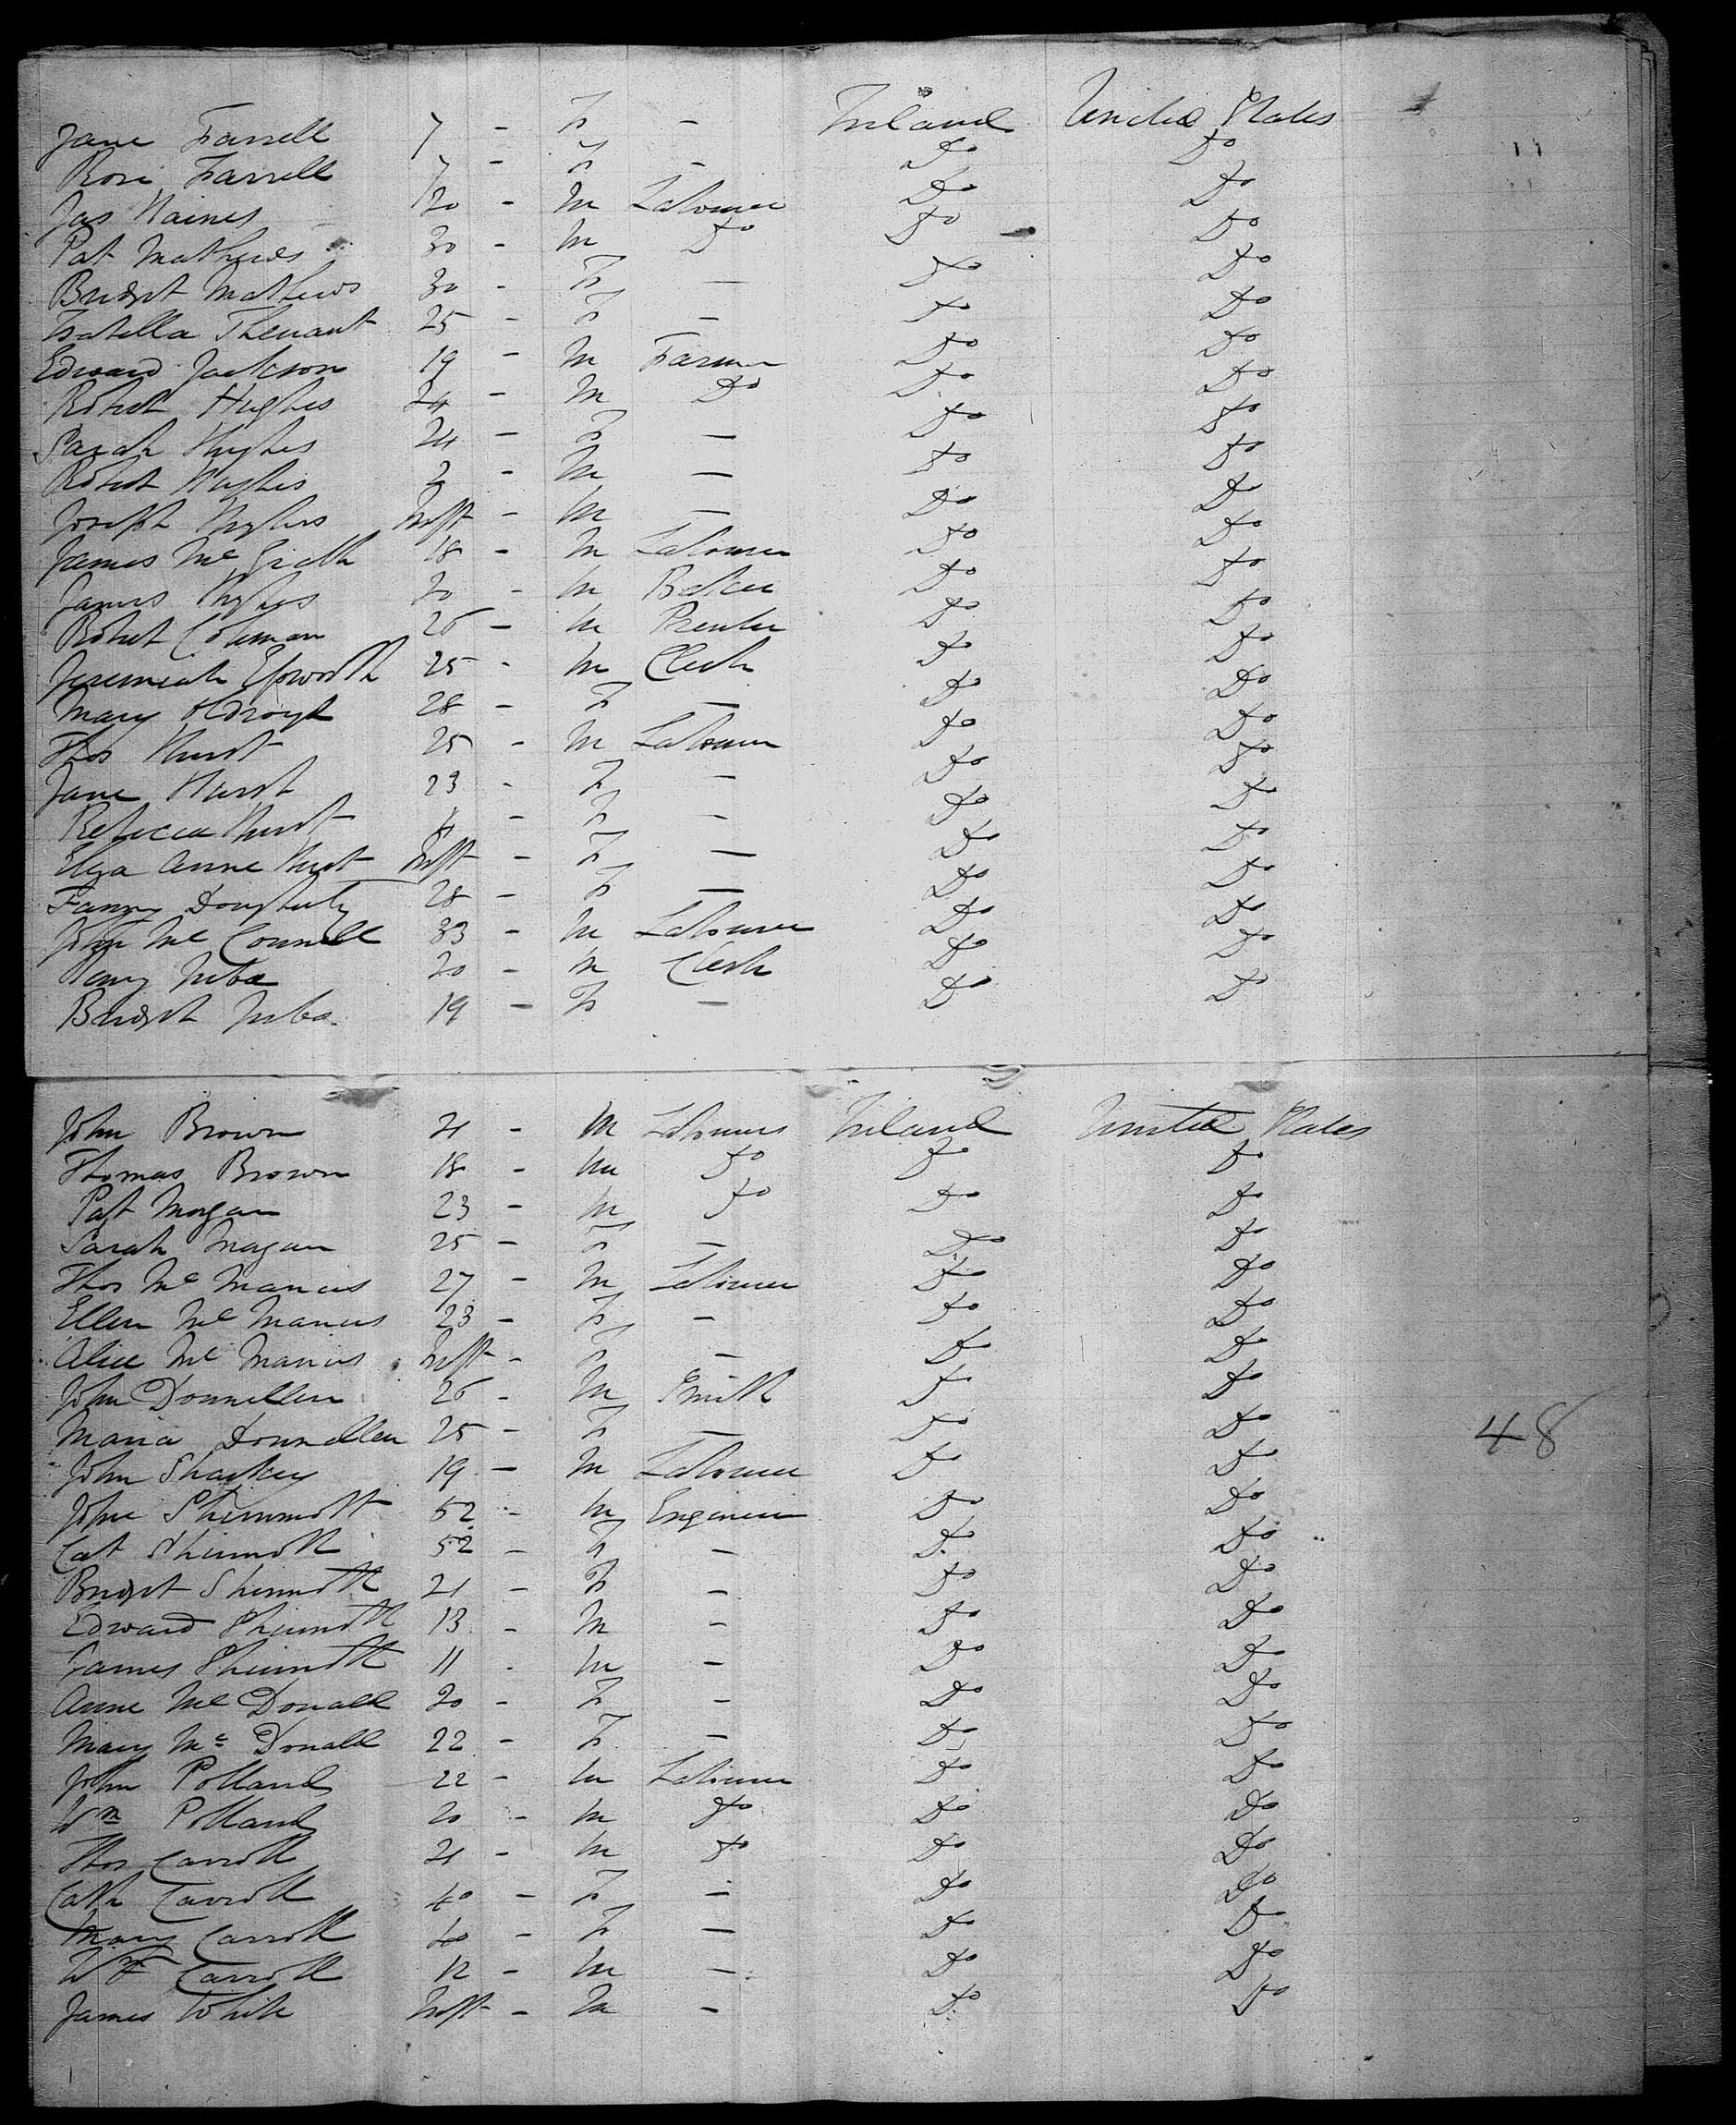 Jane Farrell 7 - F - Ireland United States
Rose Farrell 7 - F - Do Do
Jas Haines 20 - M Labourer Do Do
Pat Mathews 30 - M Do Do Do
Bridget Mathews 30 - F - Do Do
Isabella 25 - F - Do Do
Edward Jackson 19 - M Farmer Do Do
Robert Hughes 24 - M Do Do Do
Sarah Hughes 24 - F - Do Do
Robert Hughes - M - Do Do
Joseph Hughes Inft - M - Do Do
James Mc 18 - M Labourer Do Do
James Hughes 20 - M Baker Do Do
Robert Coleman 26 - M Do Do
Jeremiah Epworth 25 - M Clerk Do Do
Mary Oldroyd 28 - F - Do Do
Thos Hurst 25 - M Labourer Do Do
Jane Hurst 23 - F - Do Do
Rebecca Hurst - F - Do Do
Eliza Anne Hurst Inft - F - Do Do
Fanny Dougherty 28 - F - Do Do
John Mc Connell 33 - M Labourer Do Do
Henry 20 - M Clerk Do Do
Bridget 19 - F - Do Do
John Brown 21 - M Labourer Ireland United States
Thomas Brown 18 - M Do Do Do
Pat Morgan 23 - M Do Do Do
Sarah Morgan 25 - F - Do Do
Thos Mc Manus 27 - M Labourer Do Do
Ellen Mc Manus 23 - F - Do Do
Alice Mc Manus Inft - F - Do Do
John Donnellen 26 - M Smith Do Do
Maria Donnellen 25 - F - Do Do
48
John Sharkey 19 - M Labourer Do Do
John 52 - M Engineer Do Do
Cat 52 - F - Do Do
Bridget 21 - F - Do Do
Edward 13 - M - Do Do
James 11 - M - Do Do
Anne Mc Donald 20 - F - Do Do
Mary Mc Donald 22 - F - Do Do
John Polland 22 - M Labourer Do Do
Wm Polland 20 - M Do Do Do
Thos Carroll 21 - M Do Do Do
Cath Carroll 40 - F - Do Do
Mary Carroll - F - Do Do
Wm Carroll 12 - M - Do Do
James White Inft - M - Do Do